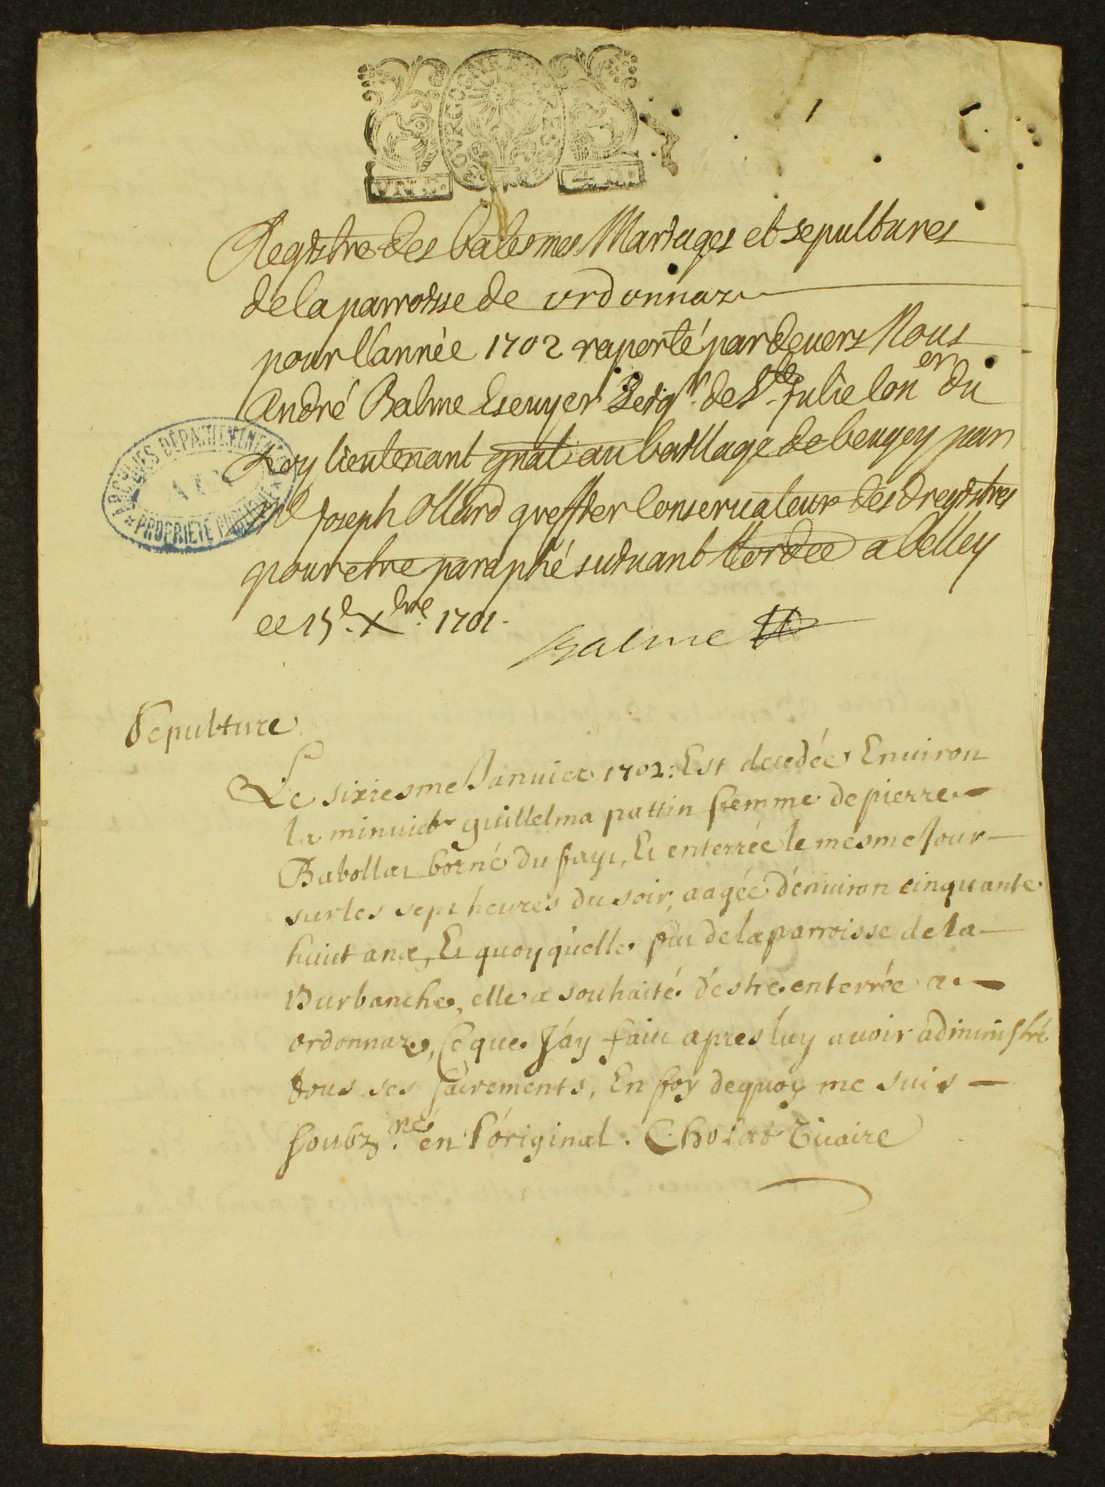 1
Registre des batesmes Mariages et sepultures
de la parroisse de ordonnaz
pour l'année 1702 raporté pardevers Nous
André Balme Escuyer Seigr. de Ste. Julie Coner du
Roy lieutenant gnal au bailliage de beugey par
Joseph Ollard greffier Conservateur des registres
pour etre paraphé suivant a belley
ce 15e. Xbre. 1701.
Balme
Sepulture
Le sixiesme Janvier 1702. Est decedée Environ
la minuict guillelma pattin femme de pierre
Babollat borné du fays, Et enterrée le mesme Jour
sur les sept heures du soir, aagée d'environ cinquante
huict ans, Et quoy qu'elle fut de la parroisse de la
Burbanche, elle a souhaité d'estre enterrée a
ordonnaz, Ce que J'ay faict apres luy avoir administré
tous ses sacrements, En foy dequoy me suis
soubz.né en l'original. Cholat Vicaire
ARCHIVES DÉPARTEMENTALES
AIN
PROPRIÉTÉ PUBLIQUE